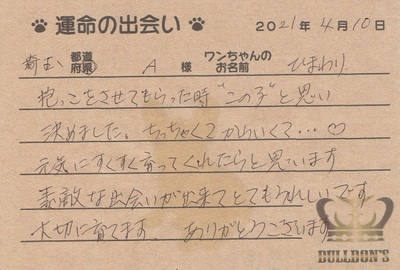 運命の出会い
2021年4月10日
埼玉 都道府県 A 様 ワンちゃんのお名前 ひまわり
抱っこをさせてもらった時"この子"と思い
決めました。ちっちゃくてかわいくて…♡
元気にすくすく育ってくれたらと思います
素敵な出会いが出来てとてもうれしいです
大切に育てます。ありがとうございます
BULLDON'S